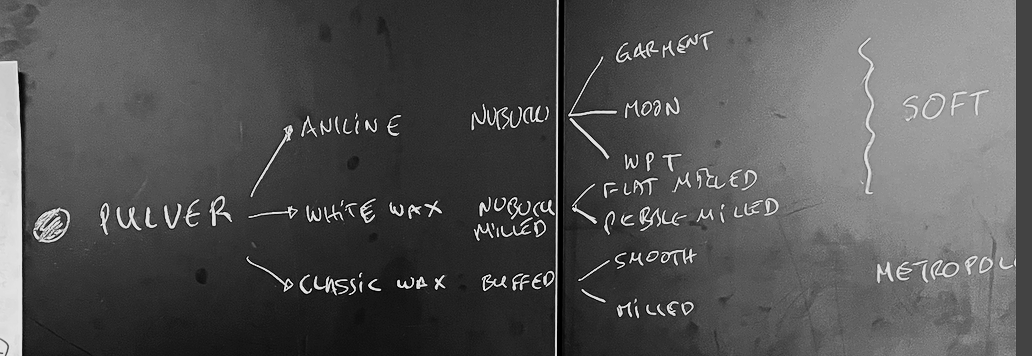 GARMENT
ANILINE NUBUCK MOON SOFT
WPT
FLAT MILLED
PULVER WHITE WAX NUBUCK PEBBLE MILLED
MILLED
SMOOTH
CLASSIC WAX BUFFED METROPOL
MILLED